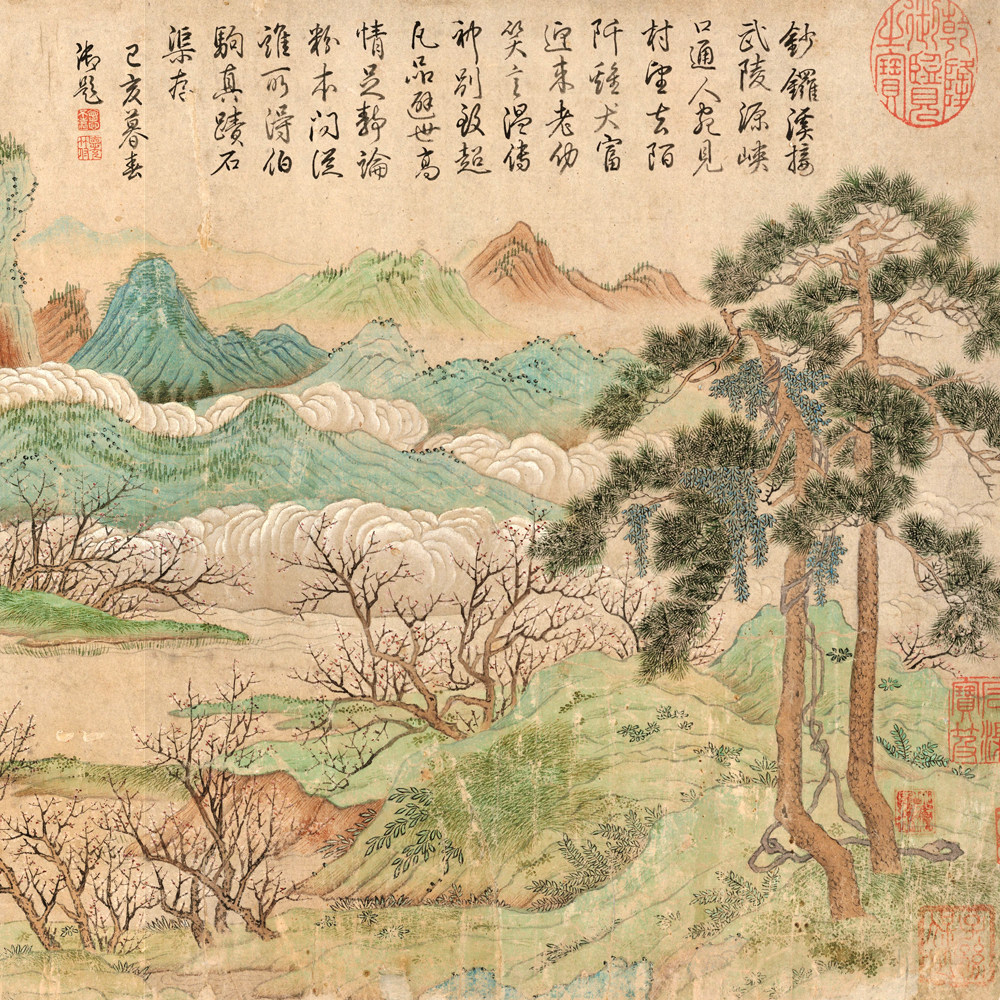 乾隆御覽之寶
鈔鑼溪接
武陵源峽
口通人宛見
村望去陌
阡雞犬富
迎来老幼
笑言温傳
神別致超
凡品避世高
情足靜論
粉本问從
誰所得伯
駒真蹟石
渠存
己亥暮春
御題